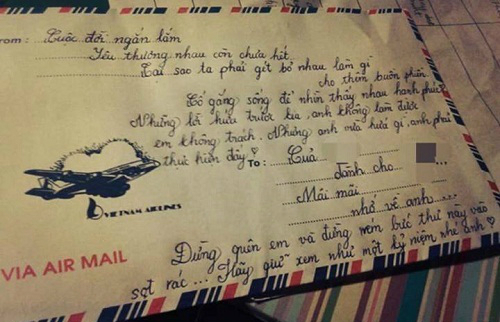 From: Cuộc đời ngắn lắm
Yêu thương nhau còn chưa hết
Tại sao ta phải giết bỏ nhau làm gì
cho thêm buồn phiền
Cố gắng sống để nhìn thấy nhau hạnh phúc
Nhưng là hứa trước kia, anh không làm được
em không trách. Nhưng anh vừa hứa gì, anh phải
thực hiện đấy
To: Của
dành cho ...
Mãi mãi
nhớ về anh...
VIETNAM AIRLINES
VIA AIR MAIL
Đừng quên em và đừng xem bức thư này vào
sọt rác... Hãy giữ xem như một kỷ niệm nhé anh